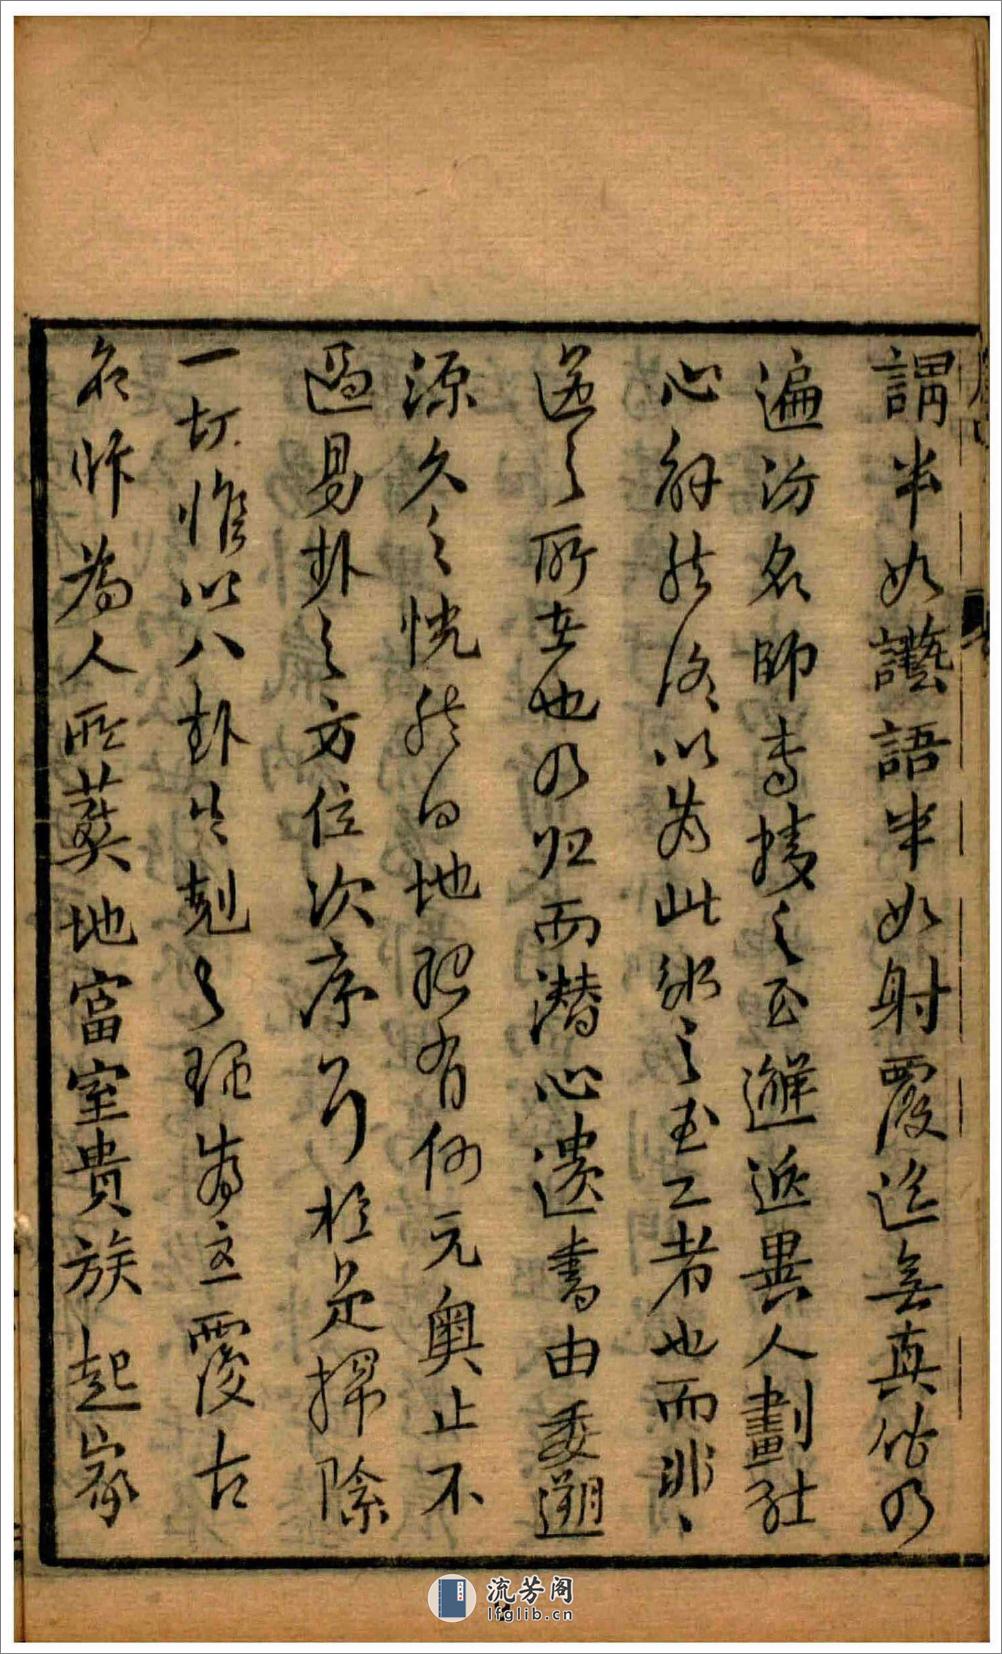 謂半如讖語半如射覆迄無真佔乃
遍訪名師專接之至邂逅異人劃社
心解然後以為此術之至工者也而非非
道之所在也乃歸而潛心遺書由委遡
源久之恍然曰地理有何元奧止不
過易卦之方位次序而已於是掃除
一切惟以八卦生剋之理為主覆古
名師為人所葬地富室貴族起家
流芳阁
lfglib.cn